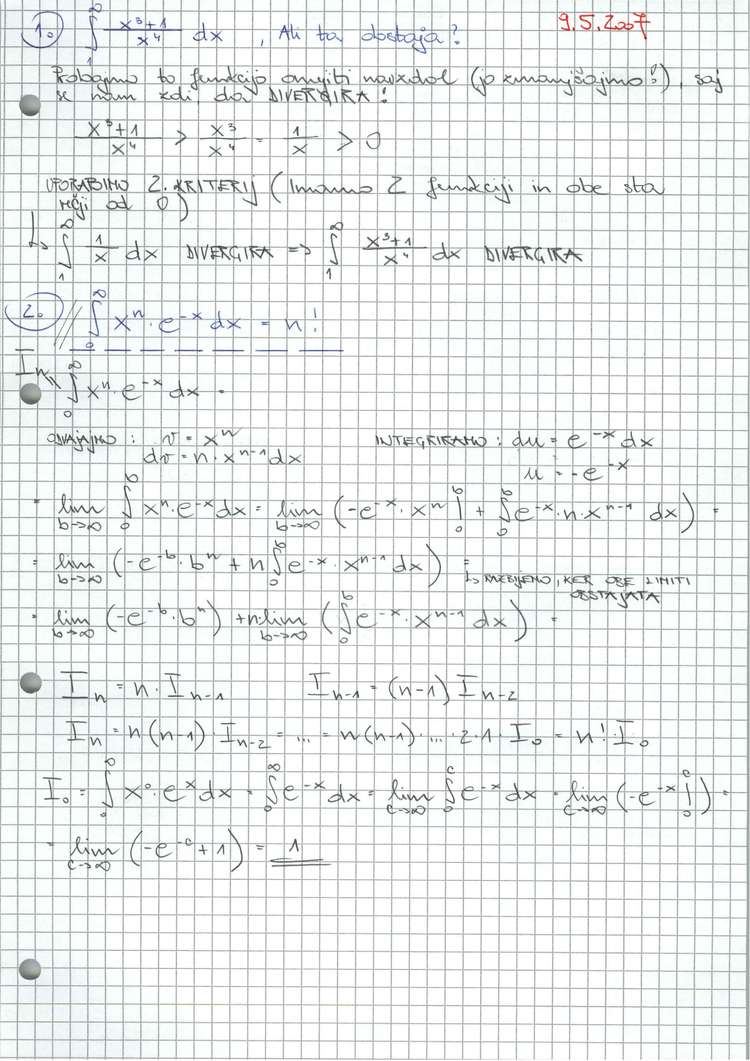 9.5.2007
1. ∫₁^∞ (x³+1)/x⁴ dx , Ali ta obstaja?
Probajmo to funkcijo omejiti navzdol (jo zmanjšajmo!), saj
se nam zdi, da DIVERGIRA!
(x³+1)/x⁴ > x³/x⁴ = 1/x > 0
UPORABIMO 2. KRITERIJ (Imamo 2 funkciji in obe sta
večji od 0)
↳ ∫₁^∞ 1/x dx DIVERGIRA => ∫₁^∞ (x³+1)/x⁴ dx DIVERGIRA
2. ∫₀^∞ xⁿ · e^(-x) dx = n!
Iₙ = ∫₀^∞ xⁿ · e^(-x) dx =
ODVAJAJMO: v = xⁿ INTEGRIRAMO: du = e^(-x) dx
dv = n · x^(n-1) dx u = -e^(-x)
= lim_(b→∞) ∫₀^b xⁿ · e^(-x) dx = lim_(b→∞) (-e^(-x) · xⁿ |₀^b + ∫₀^b e^(-x) · n · x^(n-1) dx) =
= lim_(b→∞) (-e^(-b) · bⁿ + n ∫₀^b e^(-x) · x^(n-1) dx) =
↳ RAZBIJEMO, KER OBE LIMITI
OBSTAJATA
= lim_(b→∞) (-e^(-b) · bⁿ) + n · lim_(b→∞) (∫₀^b e^(-x) · x^(n-1) dx) =
Iₙ = n · Iₙ₋₁ Iₙ₋₁ = (n-1) Iₙ₋₂
Iₙ = n(n-1) · Iₙ₋₂ = ... = n(n-1) · ... · 2 · 1 · I₀ = n! · I₀
I₀ = ∫₀^∞ x⁰ · e^x dx = ∫₀^∞ e^(-x) dx = lim_(c→∞) ∫₀^c e^(-x) dx = lim_(c→∞) (-e^(-x) |₀^c) =
= lim_(c→∞) (-e^(-c) + 1) = 1